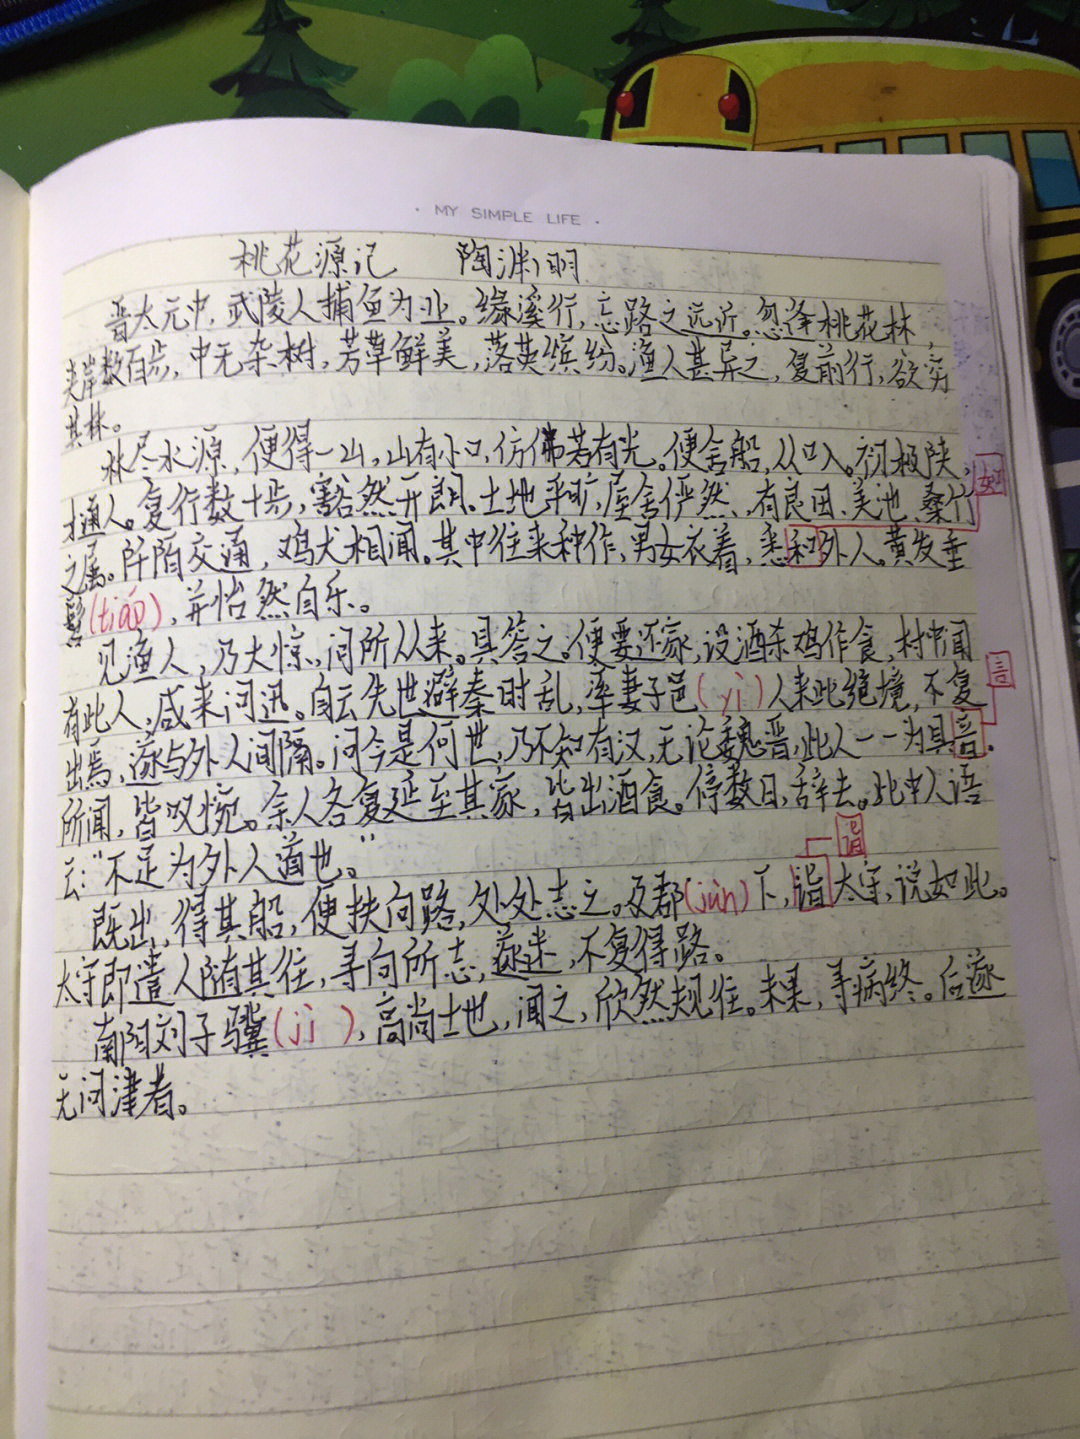 · MY SIMPLE LIFE ·
桃花源记 陶渊明
晋太元中，武陵人捕鱼为业。缘溪行，忘路之远近。忽逢桃花林，
夹岸数百步，中无杂树，芳草鲜美，落英缤纷。渔人甚异之，复前行，欲穷
其林。
林尽水源，便得一山，山有小口，仿佛若有光。便舍船，从口入。初极狭，
才通人。复行数十步，豁然开朗。土地平旷，屋舍俨然，有良田、美池、桑竹
如
之属。阡陌交通，鸡犬相闻。其中往来种作，男女衣着，悉和外人。黄发垂
髫(tiáo)，并怡然自乐。
见渔人，乃大惊，问所从来。具答之。便要还家，设酒杀鸡作食，村中闻
有此人，咸来问迅。自云先世避秦时乱，率妻子邑(yì)人来此绝境，不复
言
出焉，遂与外人间隔。问今是何世，乃不知有汉，无论魏晋，此人一一为具
所闻，皆叹惋。余人各复延至其家，皆出酒食。停数日，辞去。此中人语
云：“不足为外人道也。”
诣
既出，得其船，便扶向路，处处志之。及郡(jùn)下，诣太守，说如此。
太守即遣人随其往，寻向所志，遂迷，不复得路。
南阳刘子骥(jì)，高尚士也，闻之，欣然规往。未果，寻病终。后遂
无问津者。